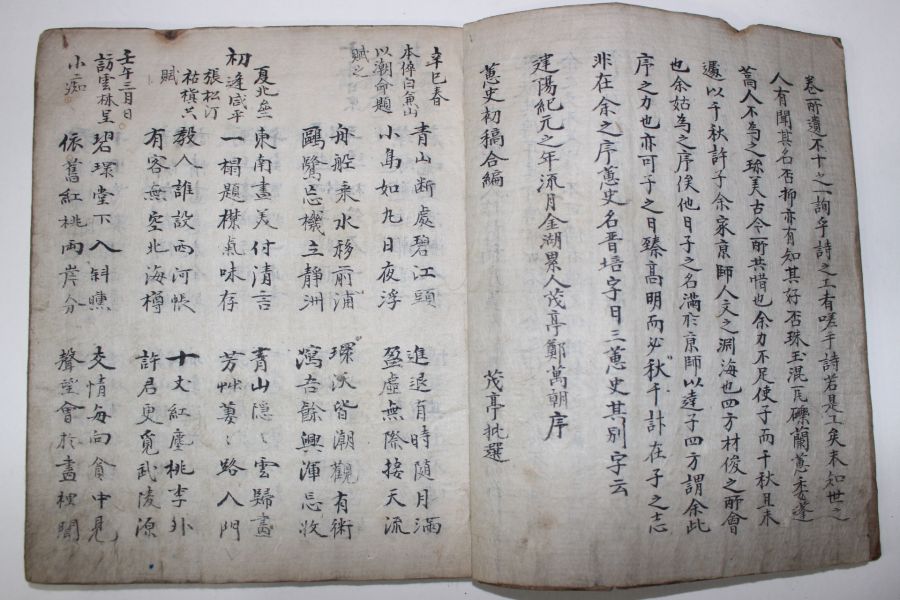 卷所遺不十之一詢乎詩之工有嗟乎詩若是工矣未知世之
人有聞其名否抑亦有知其好否珠玉混瓦礫蘭蕙委蓬
蒿人不為之珎美古今所共惜也余力不足使子而千秋且未
遽以千秋許子余家京師人文之淵海也四方材俊之所會
也余姑為之序俟他日子之名滿於京師以達于四方謂余此
序之力也亦可子之日臻高明而必秋千計在子之志
非在余之序蕙史名晋培字曰三蕙史其別字云
建陽紀元之年流月金湖累人茂亭鄭萬朝序
蕙史初稿合編 茂亭批選
辛巳春
本倅白魚山
以潮命題
賦之
青山斷處碧江頭 進退有時隨月滿
小島如九日夜浮 盈虛無際接天流
舟般乘水移前浦 環沃皆潮觀有術
鷗鷺忘機立靜洲 瀉吾餘興渾忘收
夏北無
初逢咸平
張松汀
祐稹共
賦
東南盡美付清言 青山隱〻雲歸畫
一榻題襟氣味存 芳艸萋〻路入門
人誰設西河帳 十丈紅塵桃李外
有客無空北海樽 許君更覓武陵源
壬午三月日
訪雲林呈
小痴
碧環堂下入斜曛 交情每向貧中見
依舊紅桃兩岸分 聲望會於畫裡聞